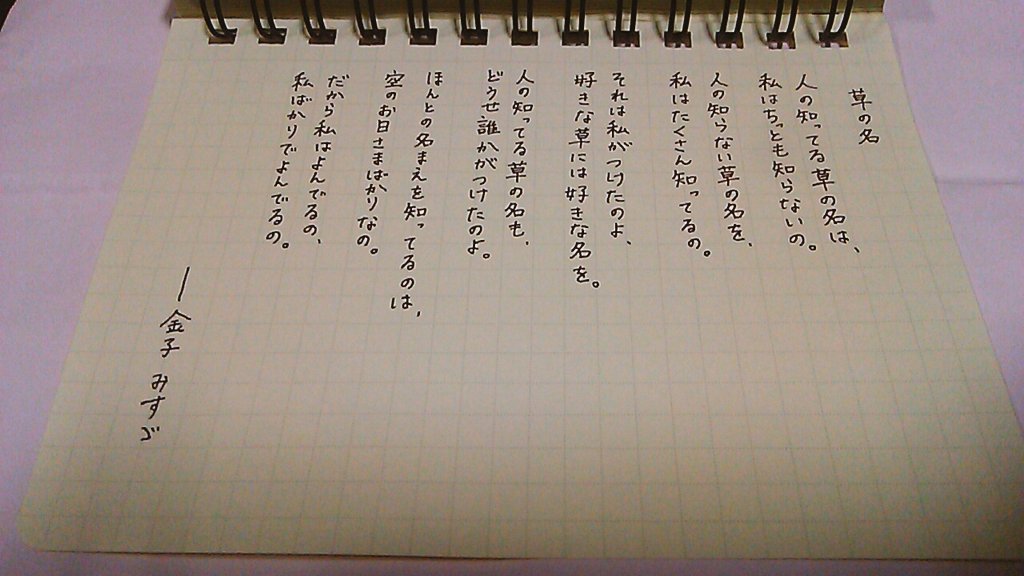 草の名
人の知ってる草の名は、
私はちっとも知らないの。
人の知らない草の名を、
私はたくさん知ってるの。
それは私がつけたのよ、
好きな草には好きな名を。
人の知ってる草の名も、
どうせ誰かがつけたのよ。
ほんとの名まえを知ってるのは、
空のお日さまばかりなの。
だから私はよんでるの、
私ばかりでよんでるの。
―金子 みすゞ